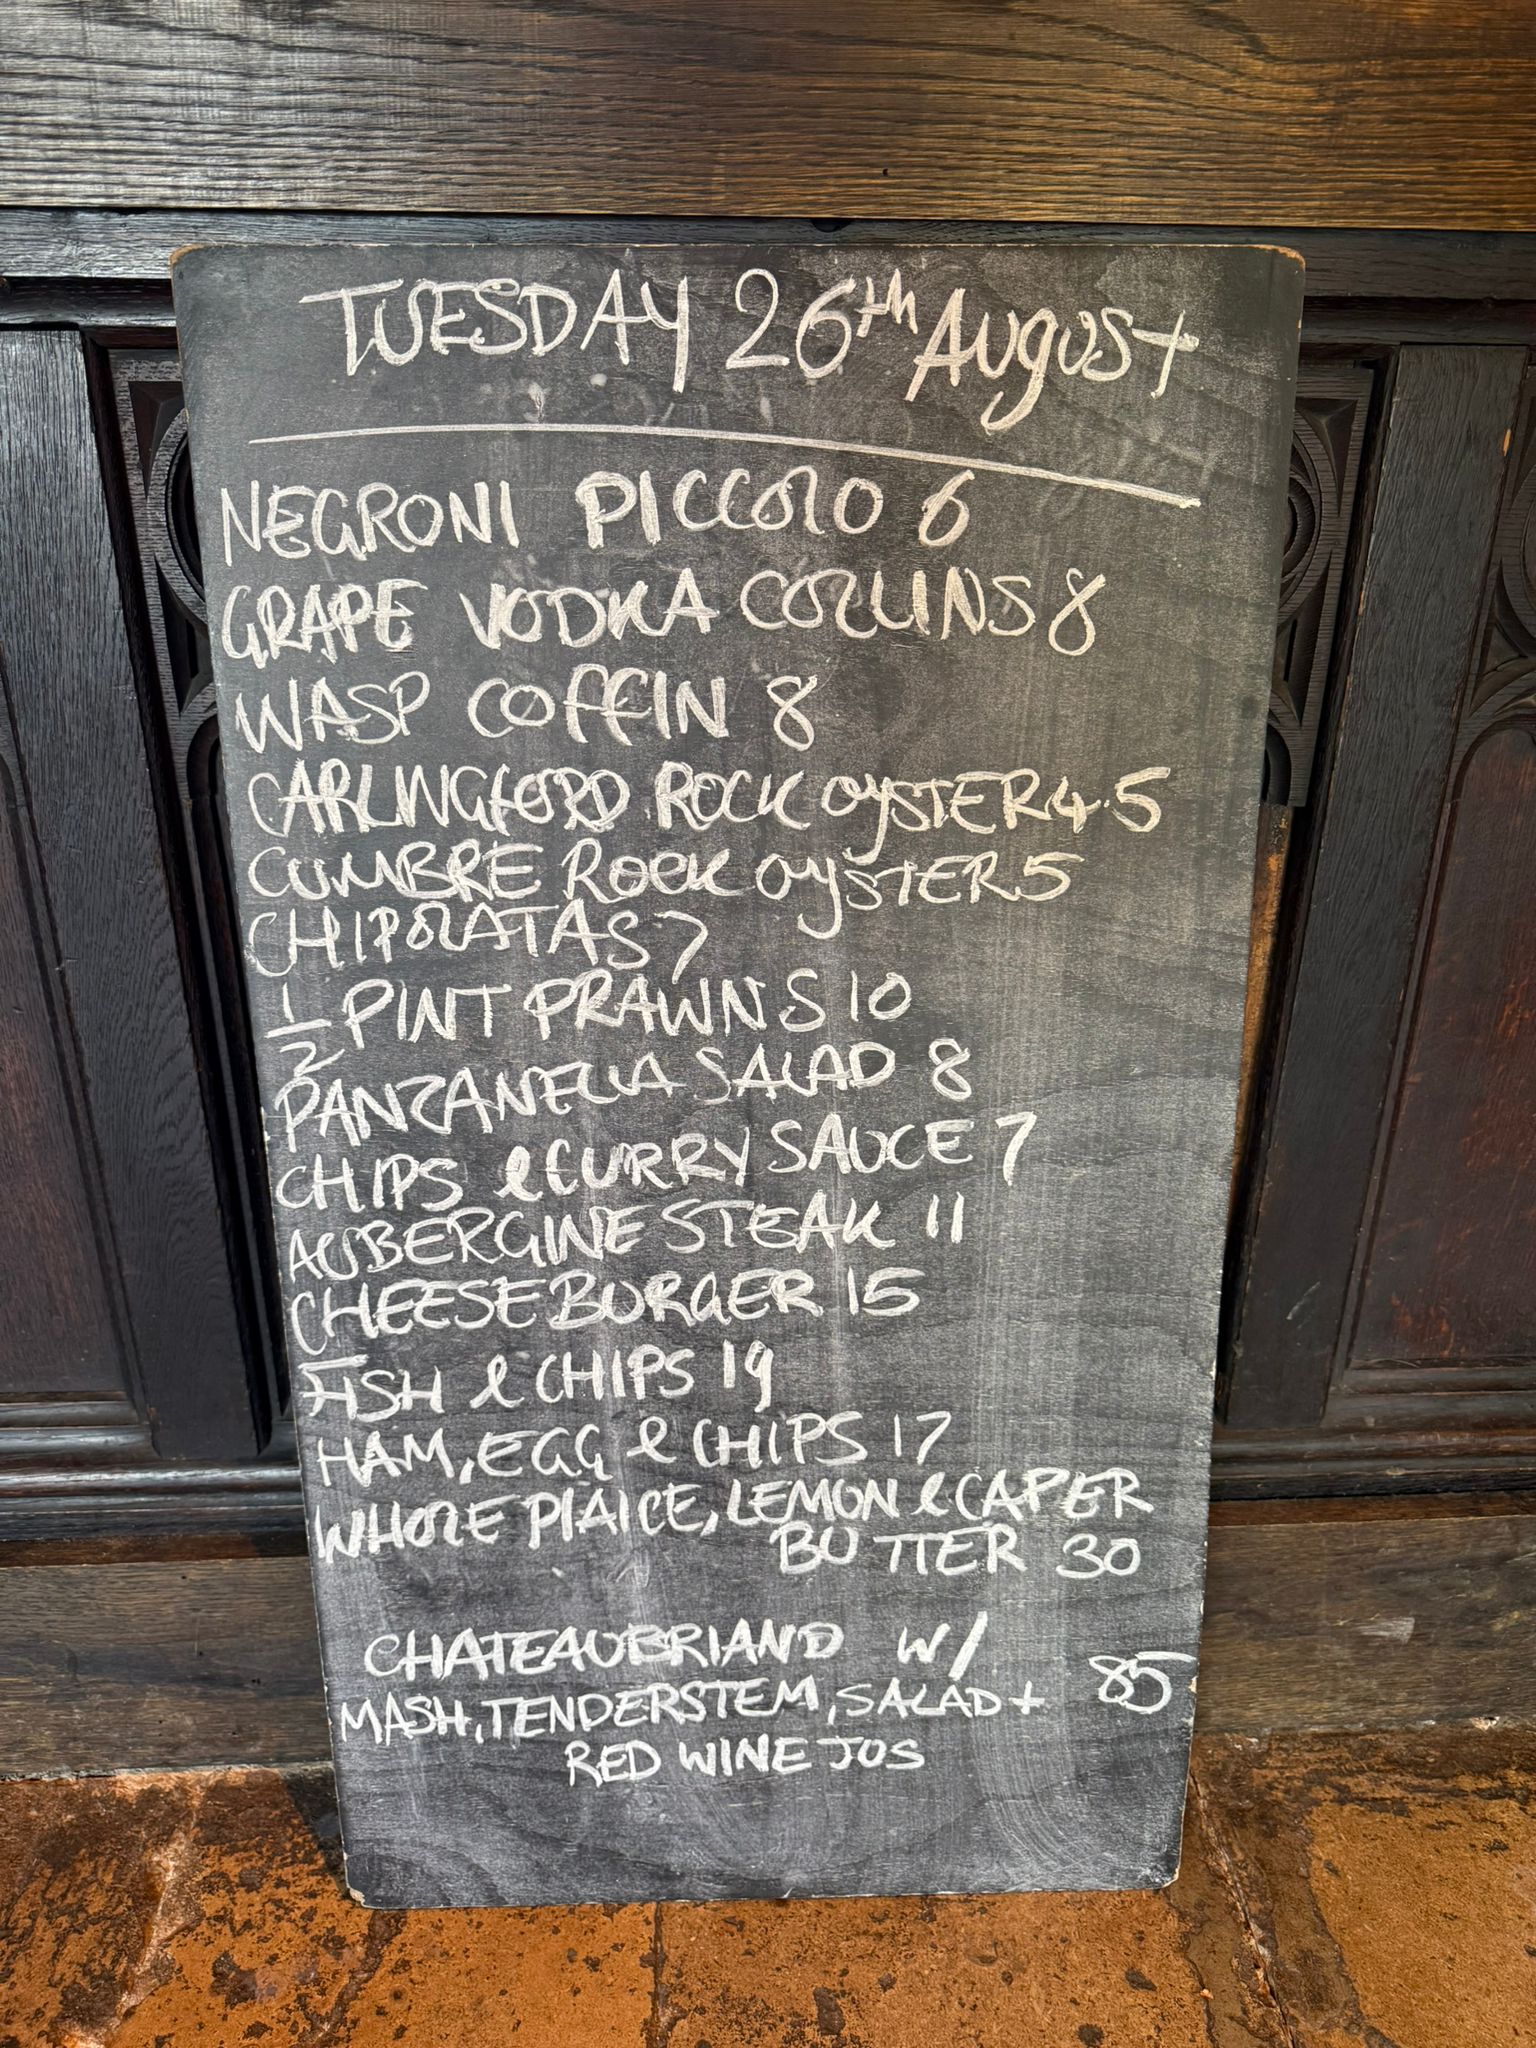 TUESDAY 26th August
NEGRONI PICCOLO 6
GRAPE VODKA COLLINS 8
WASP COFFIN 8
CARLINGFORD ROCK OYSTER 4.5
CUMBRE ROCK OYSTER 5
CHIPOLATAS 7
1/2 PINT PRAWNS 10
PANZANELLA SALAD 8
CHIPS & CURRY SAUCE 7
AUBERGINE STEAK 11
CHEESEBURGER 15
FISH & CHIPS 19
HAM, EGG & CHIPS 17
WHOLE PLAICE, LEMON & CAPER
BUTTER 30
CHATEAUBRIAND W/
MASH, TENDERSTEM, SALAD + 85
RED WINE JUS